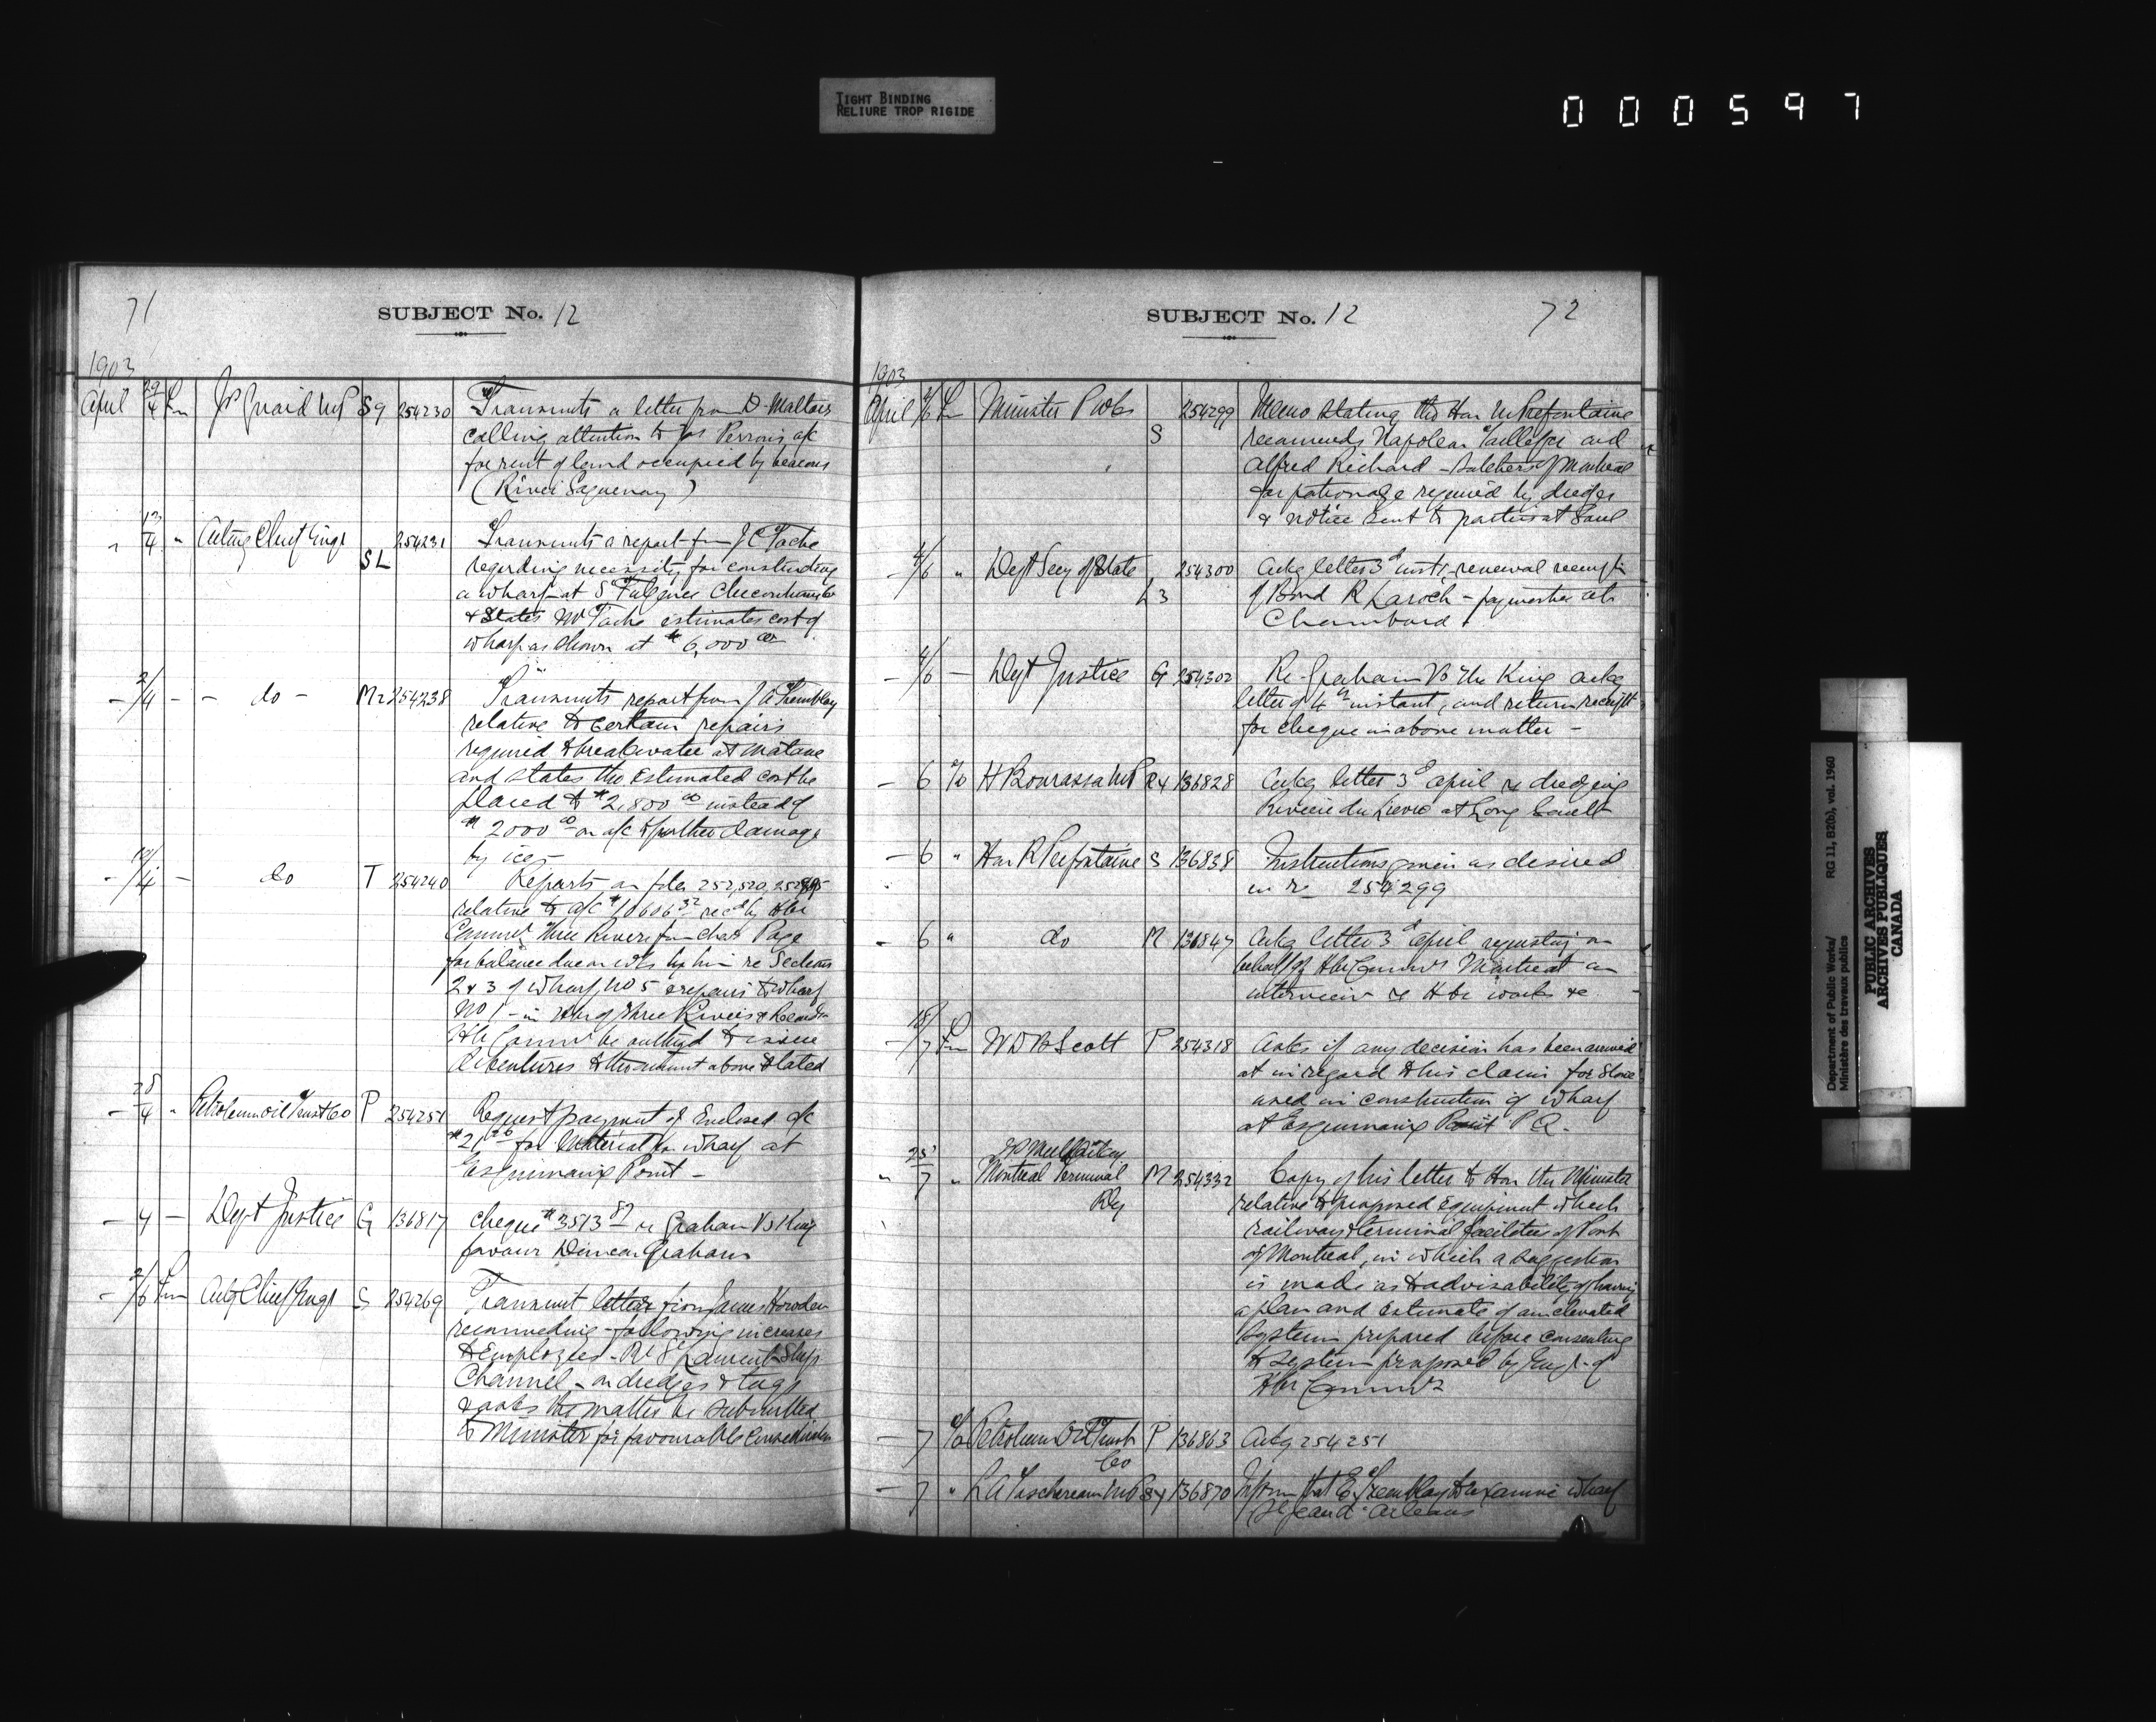 TIGHT BINDING
RELIURE TROP RIGIDE
000597
71
SUBJECT No. 12
1903
April 29/4 Lm J P Guaid MP Sg 254230 Transmits a letter from D. Maltais
calling attention to Jos Perron's a/c
for rent of land occupied by beacons
(River Saguenay)
" 13/4 " Acting Chief Engr SL 254231 Transmits a report from J C Tache
regarding necessity for constructing
a wharf at St Fulgence Chicoutimi Co
& States Mr Tache estimates cost of
wharf as shown at $6,000 00
- 2/4 - - do - Mr 254238 Transmits report from J A Tremblay
relative to certain repairs
required to breakwater at Matane
and states the estimated cost be
placed to $2,800 00 instead of
$2000 00 on a/c of further damage
by ice -
- /4 - do T 254240 Reports on files 252,520,
relative to a/c $10606 32 recd by Hbr
Commrs Three Rivers from Chas Page
for balance due on wks by him re Sections
2 & 3 of Wharf No 5 & repairs to wharf
No 1 - in Hbr of Three Rivers &
Hbr Commrs be authzd to issue
debentures to the amount above stated
- 28/4 " Petroleum Oil Trust Co P 254251 Request payment of Enclosed a/c
$21 for material for wharf at
Esquimaux Point -
- 4 - Dept Justice G 136817 cheque $3513 89 re Graham Vs King
favour Duncan Graham
- 2/6 Lm Actg Chief Engr S 254269 Transmit letter from James Howden
recommeding following increases
to Employees - Re St Laurent Ship
Channel - on dredges & tugs
& asks the matter be submitted
to Minister for favourable consideration
SUBJECT No. 12 72
1903
April 4/6 Lm Minister P Wks S 254299 Memo stating the Hon Mr Prefontaine
recommends Napoleon and
Alfred Richard - butchers of Montreal
for patronage required by dredges
& notice sent to parties at Sorel
- 4/6 " Dept Secy of State L3 254300 Ackg letter 3d inst, renewal receipt
of Bond R Laroch - paymaster at
Chambord
- 4/6 - Dept Justice G 254302 Re Graham Vs The King ackg
letter of 4th instant, and return receipt
for cheque in above matter -
- 6 % H Bourassa MP Ry 136828 Ackg letter 3d april re dredging
Riviere du Lievre at Long Sault
- 6 " Hon R Prefontaine S 136838 Instructions given as desired
in re 254299
- 6 " do M 136847 Ackg letter 3d april requesting on
behalf of Hbr Commrs Montreal an
interview re Hbr works &c
- 18/7 Lm W D B Scott P 254318 Asks if any decision has been arrived
at in regard to his claim for stone
used in construction of wharf
at Esquimaux Point P Q.
" 25/7 " Montreal Terminal
Ry M 254332 Copy of his letter to Hon the Minister
relative to proposed equipment wheels
railway & terminal facilities of Port
of Montreal, in which a suggestion
is made as to advisability of having
a plan and estimate of an elevated
System prepared before consenting
to system proposed by Engr. of
Hbr Commrs
- 7 % Petroleum Oil Trust
Co P 136863 Ackg 254251
- 7 " L A Taschereau MP Sy 136870 Inform that E. Tremblay to examine wharf
St Jean d'Orleans
Department of Public Works/ RG 11, B2(b), vol. 1960
Ministère des travaux publics
PUBLIC ARCHIVES
ARCHIVES PUBLIQUES
CANADA